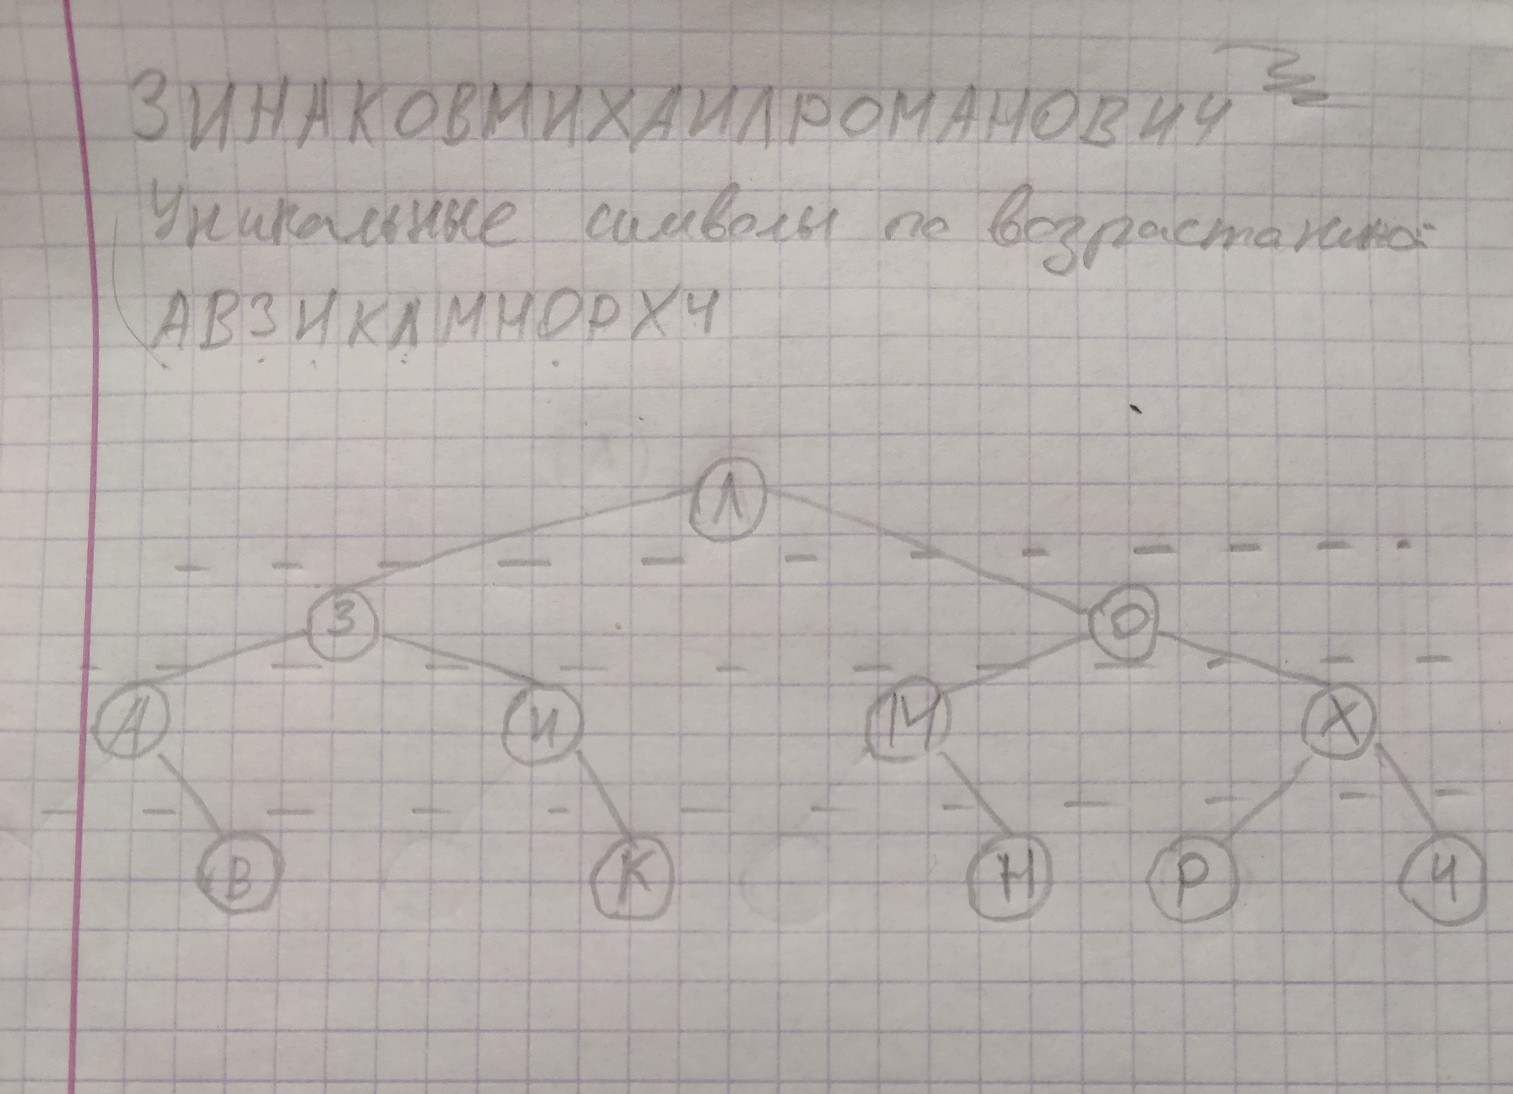 ЗИНАКОВМИХАИЛРОМАНОВИЧ
Уникальные символы по возрастанию:
АВЗИКЛМНОРХЧ
Л
З О
А И М Х
В К Н Р Ч